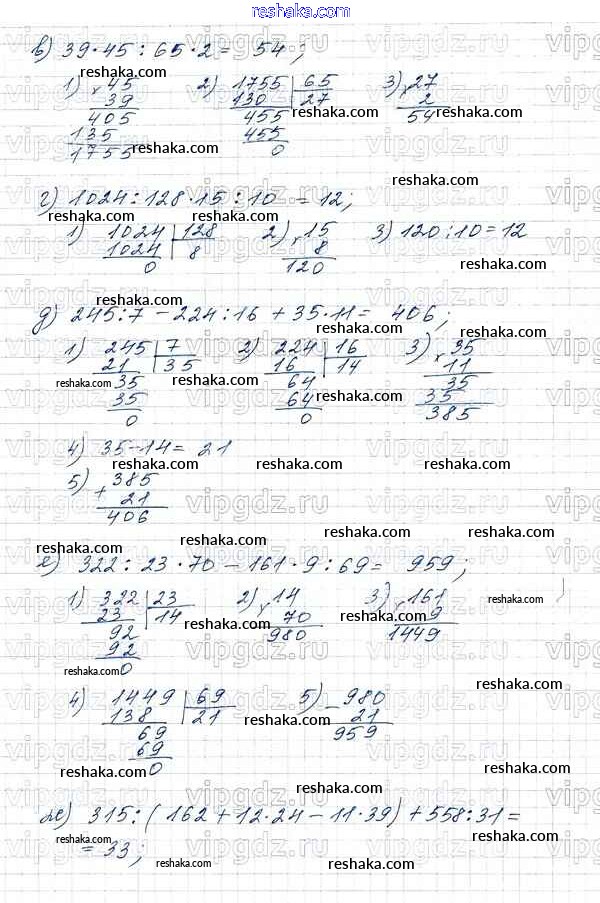 reshaka.com
в) 39·45 : 65·2 = 54;
1) × 45
39
405
135
1755
2) 1755 | 65
130 | 27
455
455
0
3) × 27
2
54
г) 1024 : 128·15 : 10 = 12;
1) 1024 | 128
1024 | 8
0
2) × 15
8
120
3) 120 : 10 = 12
д) 245 : 7 − 224 : 16 + 35·11 = 406;
1) 245 | 7
21 | 35
35
35
0
2) 224 | 16
16 | 14
64
64
0
3) × 35
11
35
35
385
4) 35 − 14 = 21
5) + 385
21
406
е) 322 : 23·70 − 161·9 : 69 = 959;
1) 322 | 23
23 | 14
92
92
0
2) × 14
70
980
3) × 161
9
1449
4) 1449 | 69
138 | 21
69
69
0
5) − 980
21
959
ж) 315 : (162 + 12·24 − 11·39) + 558 : 31 =
= 33;